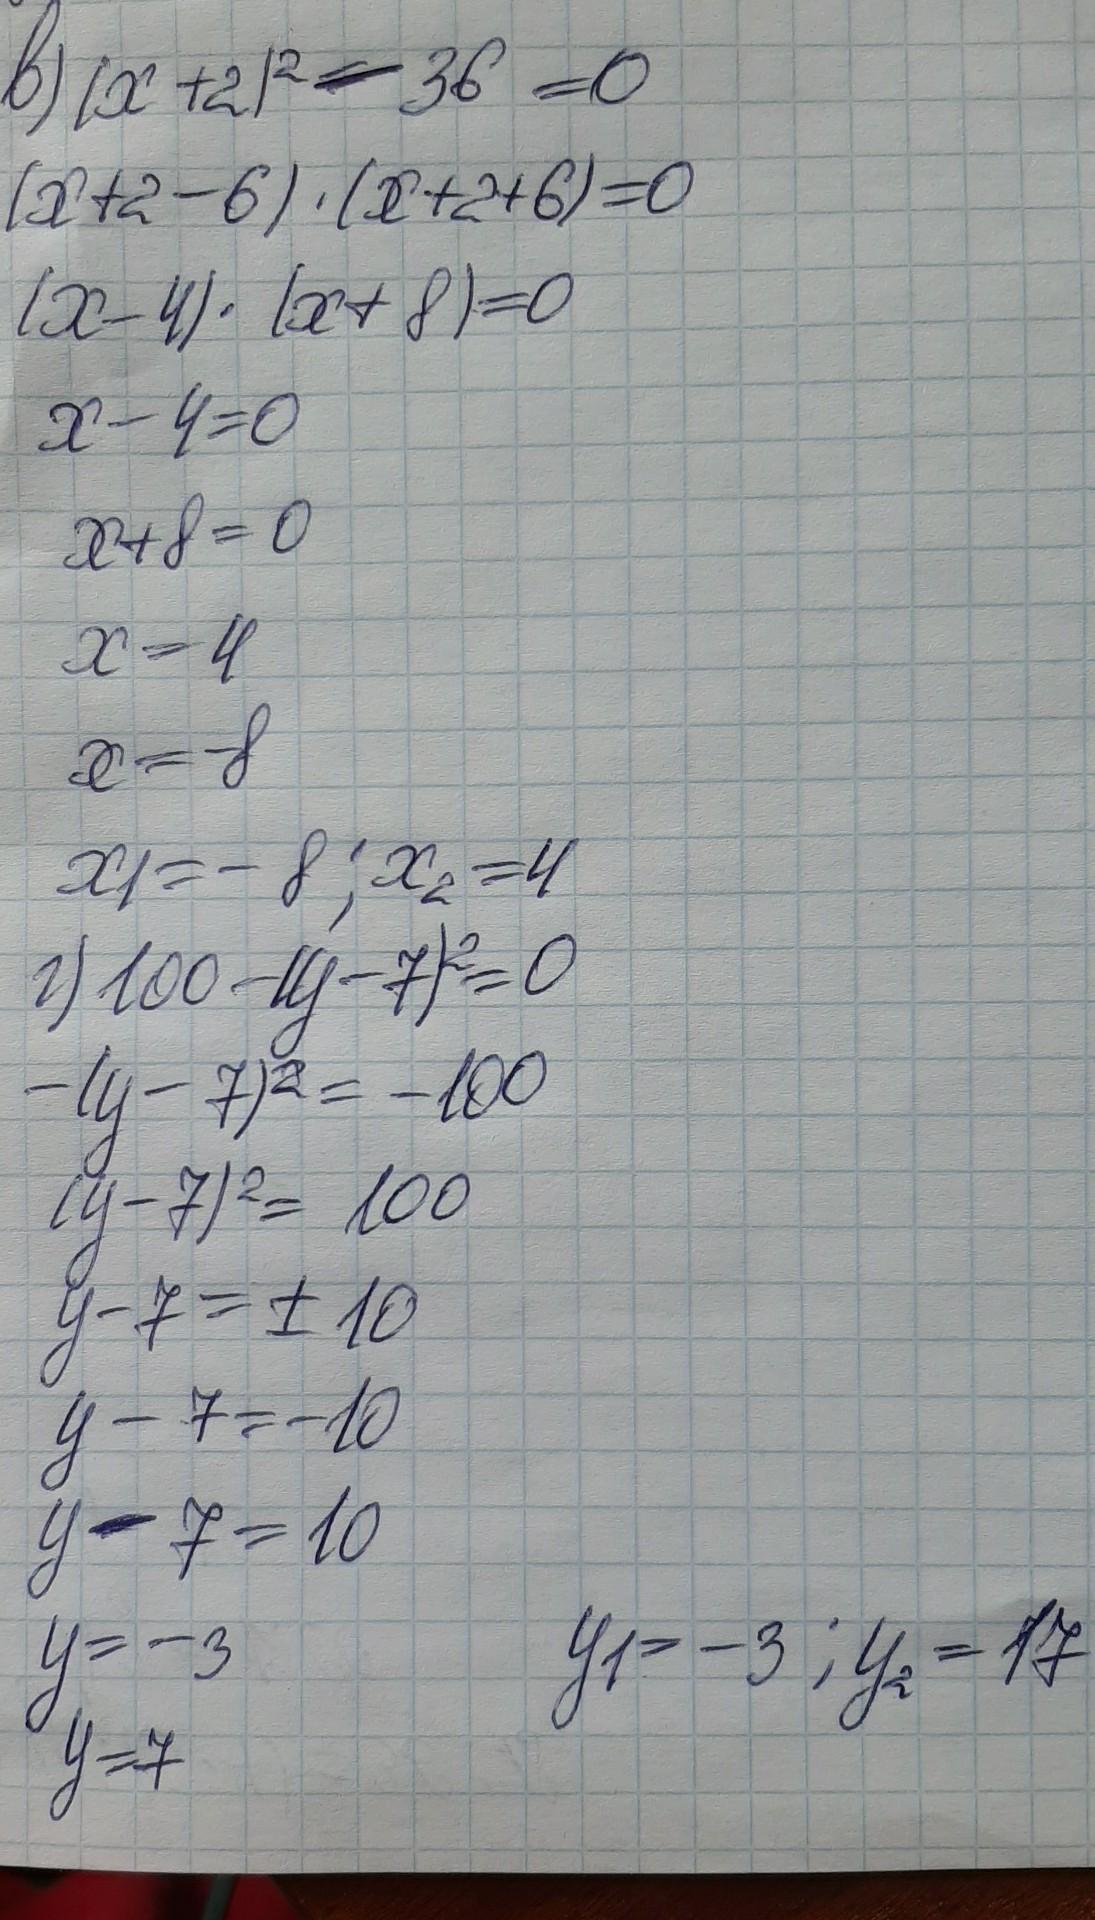 в) (x+2)² - 36 = 0
(x+2-6)·(x+2+6)=0
(x-4)·(x+8)=0
x-4=0
x+8=0
x=4
x=-8
x₁=-8; x₂=4
г) 100-(y-7)²=0
-(y-7)²=-100
(y-7)²=100
y-7=±10
y-7=-10
y-7=10
y=-3
y₁=-3; y₂=17
y=7